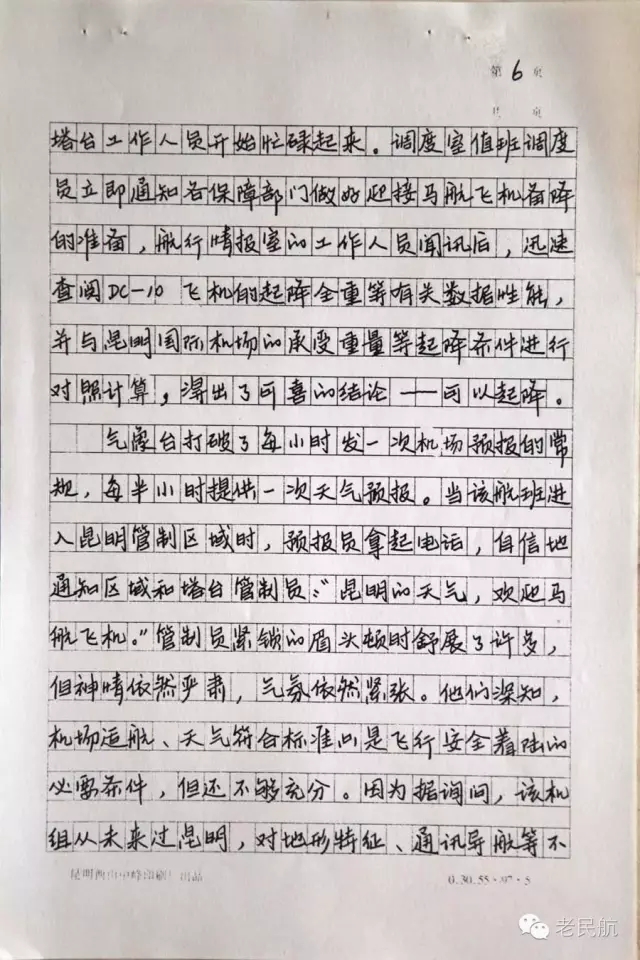 第 6 页
共 页
塔台工作人员开始忙碌起来。调度室值班调度
员立即通知各保障部门做好迎接马航飞机备降
的准备，航行情报室的工作人员闻讯后，迅速
查阅DC-10飞机的起降全重等有关数据性能，
并与昆明国际机场的承受重量等起降条件进行
对照计算，得出了可喜的结论——可以起降。
气象台打破了每小时发一次机场预报的常
规，每半小时提供一次天气预报。当该航班进
入昆明管制区域时，预报员拿起电话，自信地
通知区域和塔台管制员：“昆明的天气，欢迎马
航飞机。”管制员紧锁的眉头顿时舒展了许多，
但神情依然严肃，气氛依然紧张。他们深知，
机场适航、天气符合标准只是飞行安全着陆的
必要条件，但还不够充分。因为据询问，该机
组从未来过昆明，对地形特征、通讯导航等不
昆明西山中峰印刷厂出品 0.30.55·97·5
老民航